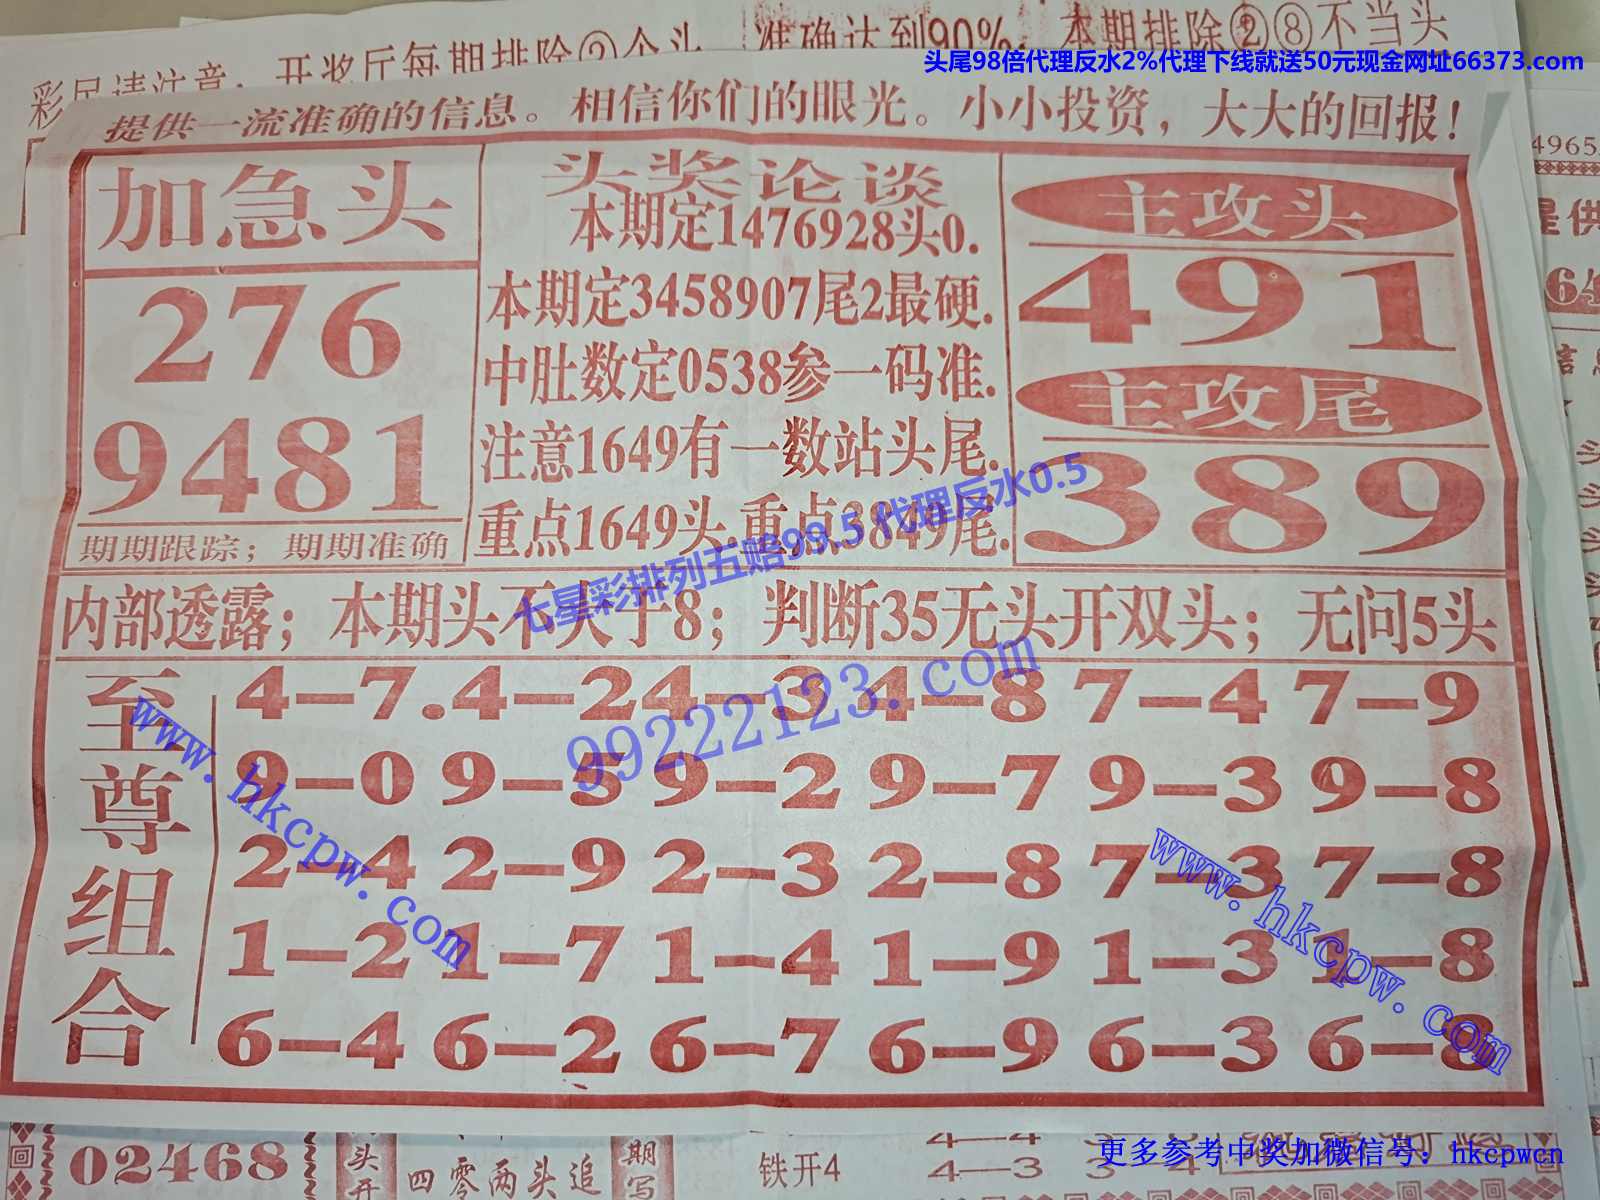 准确达到90%,
本期排除②⑧不当头
彩民请注意：开奖厅每期排除②个头
头尾98倍代理反水2%代理下线就送50元现金网址66373.com
提供一流准确的信息。相信你们的眼光。小小投资，大大的回报！
加急头
276
9481
期期跟踪；期期准确
头奖论谈
本期定1476928头0.
本期定3458907尾2最硬.
中肚数定0538参一码准.
注意1649有一数站头尾.
重点1649头.重点3849尾.
主攻头
491
主攻尾
389
七星彩排列五赔99.5 代理反水0.5
内部透露；本期头不大于8；判断35无头开双头；无问5头
99222123.com
至尊组合
4—7.4—24—3 4—8 7—4 7—9
9—0 9—5 9—2 9—7 9—3 9—8
2—4 2—9 2—3 2—8 7—3 7—8
1—2 1—7 1—4 1—9 1—3 1—8
6—4 6—2 6—7 6—9 6—3 6—8
www.hkcpw.com
www.hkcpw.com
02468
头开
四零两头追
期写
铁开4
4—4
4—3
更多参考中奖加微信号：hkcpwcn
4965